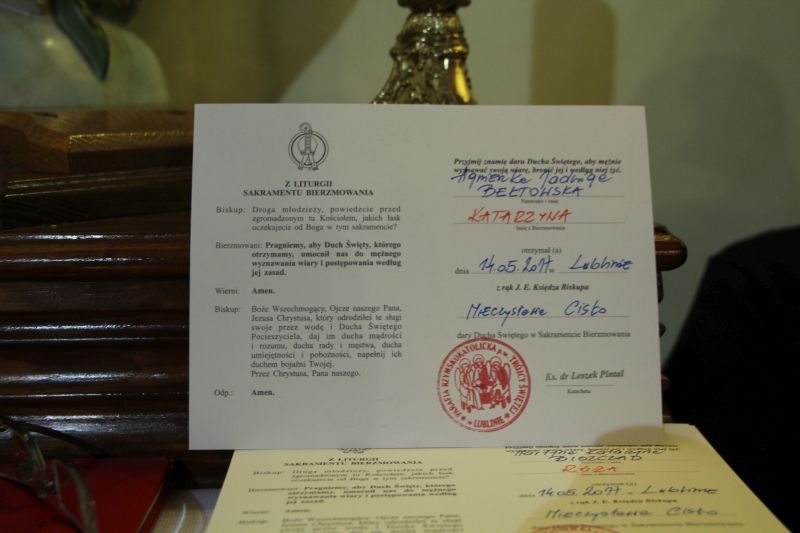 Z LITURGII
SAKRAMENTU BIERZMOWANIA
Biskup: Droga młodzieży, powiedzcie przed
zgromadzonym tu Kościołem, jakich łask
oczekujecie od Boga w tym sakramencie?
Bierzmowani: Pragniemy, aby Duch Święty, którego
otrzymamy, umocnił nas do mężnego
wyznawania wiary i postępowania według
jej zasad.
Wierni: Amen.
Biskup: Boże Wszechmogący, Ojcze naszego Pana,
Jezusa Chrystusa, który odrodziłeś te sługi
swoje przez wodę i Ducha Świętego
Pocieszyciela, daj im ducha mądrości
i rozumu, ducha rady i męstwa, ducha
umiejętności i pobożności, napełnij ich
duchem bojaźni Twojej.
Przez Chrystusa, Pana naszego.
Odp.: Amen.
Przyjmij znamię daru Ducha Świętego, aby mężnie
wyznawać swoją wiarę, bronić jej i według niej żyć.
Agnieszka Jadwiga
BEŁTOWSKA
Nazwisko i imię
KATARZYNA
Imię z Bierzmowania
otrzymał (a)
dnia 14.05.2017 w Lublinie
z rąk J. E. Księdza Biskupa
Mieczysława Cisło
dary Ducha Świętego w Sakramencie Bierzmowania
PARAFIA RZYMSKOKATOLICKA p.w. TRÓJCY ŚWIĘTEJ
W LUBLINIE
Ks. dr Leszek Pintal
Katecheta
Z LITURGII
SAKRAMENTU BIERZMOWANIA
Biskup: Droga młodzieży, powiedzcie przed
zgromadzonym tu Kościołem, jakich łask
oczekujecie od Boga w tym sakramencie?
Bierzmowani: Pragniemy, aby Duch Święty, którego
otrzymamy, umocnił nas do mężnego
wyznawania wiary i postępowania według
jej zasad.
Wierni: Amen.
Biskup: Boże Wszechmogący, Ojcze naszego Pana,
Jezusa Chrystusa, który odrodziłeś te sługi
swoje przez wodę i Ducha Świętego
RÓŻA
otrzymał (a)
dnia 14.05.2017 w Lublinie
z rąk J. E. Księdza Biskupa
Mieczysława Cisło